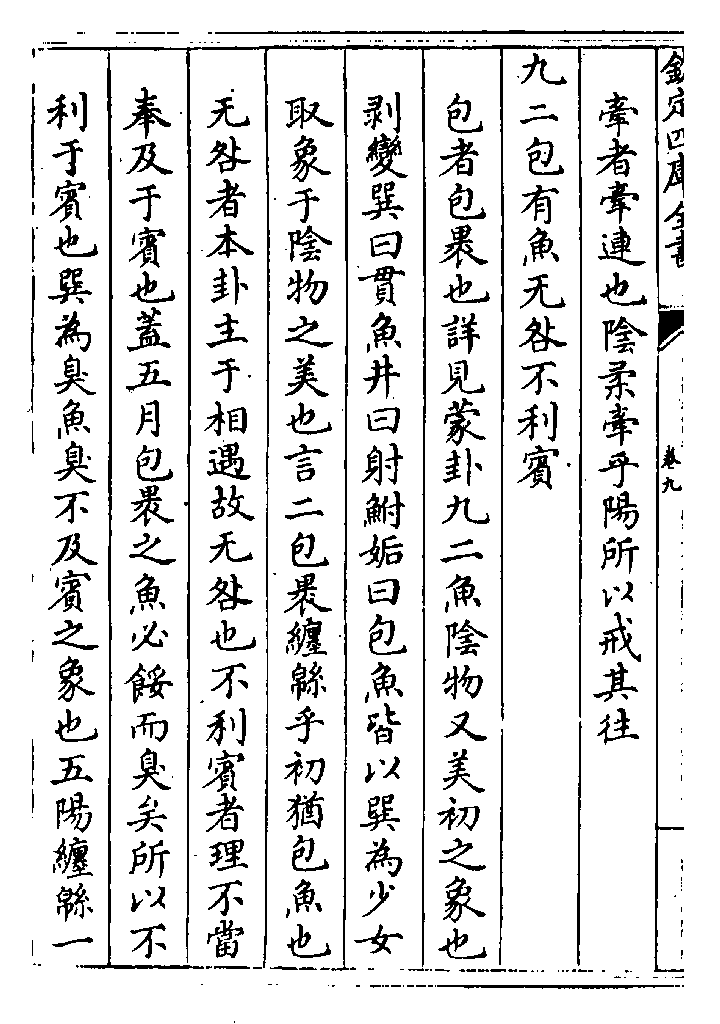 欽定四庫全書
卷九
牽者牽連也陰柔牽乎陽所以戒其往
九二包有魚无咎不利賓
包者包裹也詳見蒙卦九二魚陰物又美初之象也
剥變巽曰貫魚井曰射鮒姤曰包魚皆以巽為少女
取象于陰物之美也言二包裹纏綿乎初猶包魚也
无咎者本卦主于相遇故无咎也不利賓者理不當
奉及于賓也蓋五月包裹之魚必餒而臭矣所以不
利于賓也巽為臭魚臭不及賓之象也五陽纏綿一